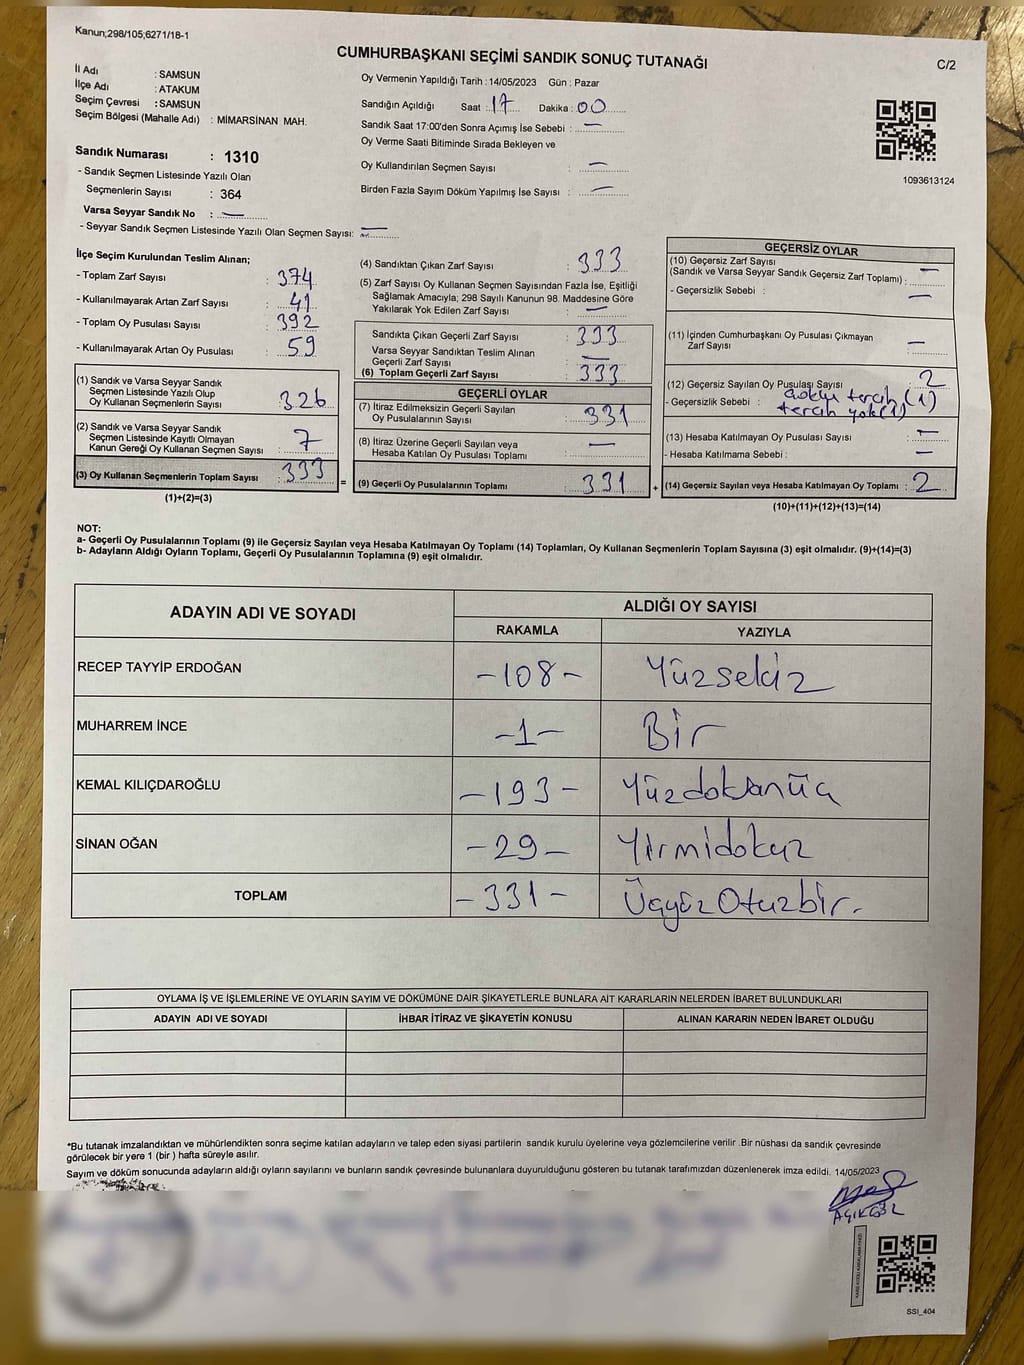 Kanun;298/105;6271/18-1
CUMHURBAŞKANI SEÇİMİ SANDIK SONUÇ TUTANAĞI
C/2
İl Adı : SAMSUN
İlçe Adı : ATAKUM
Seçim Çevresi : SAMSUN
Seçim Bölgesi (Mahalle Adı) : MİMARSİNAN MAH.
Sandık Numarası : 1310
- Sandık Seçmen Listesinde Yazılı Olan
Seçmenlerin Sayısı : 364
Varsa Seyyar Sandık No : —
- Seyyar Sandık Seçmen Listesinde Yazılı Olan Seçmen Sayısı: —
Oy Vermenin Yapıldığı Tarih : 14/05/2023 Gün : Pazar
Sandığın Açıldığı Saat : 17 Dakika : 00
Sandık Saat 17:00'den Sonra Açımış İse Sebebi : —
Oy Verme Saati Bitiminde Sırada Bekleyen ve
Oy Kullandırılan Seçmen Sayısı : —
Birden Fazla Sayım Döküm Yapılmış İse Sayısı : —
1093613124
İlçe Seçim Kurulundan Teslim Alınan;
- Toplam Zarf Sayısı : 374
- Kullanılmayarak Artan Zarf Sayısı : 41
- Toplam Oy Pusulası Sayısı : 392
- Kullanılmayarak Artan Oy Pusulası : 59
(1) Sandık ve Varsa Seyyar Sandık
Seçmen Listesinde Yazılı Olup
Oy Kullanan Seçmenlerin Sayısı : 326
(2) Sandık ve Varsa Seyyar Sandık
Seçmen Listesinde Kayıtlı Olmayan
Kanun Gereği Oy Kullanan Seçmen Sayısı : 7
(3) Oy Kullanan Seçmenlerin Toplam Sayısı : 333 =
(1)+(2)=(3)
(4) Sandıktan Çıkan Zarf Sayısı : 333
(5) Zarf Sayısı Oy Kullanan Seçmen Sayısından Fazla İse, Eşitliği
Sağlamak Amacıyla; 298 Sayılı Kanunun 98. Maddesine Göre
Yakılarak Yok Edilen Zarf Sayısı : —
Sandıkta Çıkan Geçerli Zarf Sayısı : 333
Varsa Seyyar Sandıktan Teslim Alınan
Geçerli Zarf Sayısı : —
(6) Toplam Geçerli Zarf Sayısı : 333
GEÇERLİ OYLAR
(7) İtiraz Edilmeksizin Geçerli Sayılan
Oy Pusulasının Sayısı : 331
(8) İtiraz Üzerine Geçerli Sayılan veya
Hesaba Katılan Oy Pusulası Toplamı : —
(9) Geçerli Oy Pusulalarının Toplamı : 331 +
GEÇERSİZ OYLAR
(10) Geçersiz Zarf Sayısı
(Sandık ve Varsa Seyyar Sandık Geçersiz Zarf Toplamı) : —
- Geçersizlik Sebebi : —
(11) İçinden Cumhurbaşkanı Oy Pusulası Çıkmayan
Zarf Sayısı : —
(12) Geçersiz Sayılan Oy Pusulası Sayısı : 2
- Geçersizlik Sebebi : tercih (1)
tercih yok(1)
(13) Hesaba Katılmayan Oy Pusulası Sayısı : —
- Hesaba Katılmama Sebebi : —
(14) Geçersiz Sayılan veya Hesaba Katılmayan Oy Toplamı : 2
(10)+(11)+(12)+(13)=(14)
NOT:
a- Geçerli Oy Pusulalarının Toplamı (9) ile Geçersiz Sayılan veya Hesaba Katılmayan Oy Toplamı (14) Toplamları, Oy Kullanan Seçmenlerin Toplam Sayısına (3) eşit olmalıdır. (9)+(14)=(3)
b- Adayların Aldığı Oyların Toplamı, Geçerli Oy Pusulalarının Toplamına (9) eşit olmalıdır.
ADAYIN ADI VE SOYADI ALDIĞI OY SAYISI
RAKAMLA YAZIYLA
RECEP TAYYİP ERDOĞAN -108- Yüzsekiz
MUHARREM İNCE -1- Bir
KEMAL KILIÇDAROĞLU -193- Yüzdoksanüç
SİNAN OĞAN -29- Yirmidokuz
TOPLAM -331- Üçyüz Otuzbir.
OYLAMA İŞ VE İŞLEMLERİNE VE OYLARIN SAYIM VE DÖKÜMÜNE DAİR ŞİKAYETLERLE BUNLARA AİT KARARLARIN NELERDEN İBARET BULUNDUKLARI
ADAYIN ADI VE SOYADI İHBAR İTİRAZ VE ŞİKAYETİN KONUSU ALINAN KARARIN NEDEN İBARET OLDUĞU
*Bu tutanak imzalandıktan ve mühürlendikten sonra seçime katılan adayların ve talep eden siyasi partilerin sandık kurulu üyelerine veya gözlemcilerine verilir .Bir nüshası da sandık çevresinde
görülecek bir yere 1 (bir ) hafta süreyle asılır.
Sayım ve döküm sonucunda adayların aldığı oyların sayılarını ve bunların sandık çevresinde bulunanlara duyurulduğunu gösteren bu tutanak tarafımızdan düzenlenerek imza edildi. 14/05/2023
AÇIKGÖZ
SSI_404